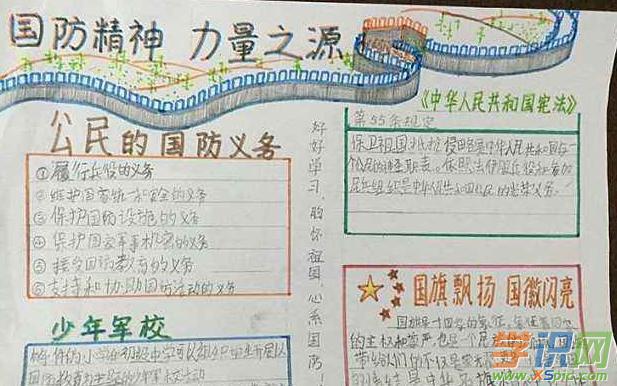 国防精神 力量之源
公民的国防义务
①履行兵役的义务
②维护国家统一和安全的义务
③保护国防设施的义务
④保护国家军事机密的义务
⑤接受国防教育的义务
⑥支持和协助国防活动的义务
少年军校
好好学习，胸怀祖国，心系国防
《中华人民共和国宪法》
第55条规定
保卫祖国抵抗侵
中华人民共和国每一
依照法律服兵役和参加
民兵组织是中华人民共和国公民的光荣义务.
国旗飘扬 国徽闪亮
国旗是一
的主权和尊严,也是一个民
带给我们的不仅是
学识网
www.xspic.com